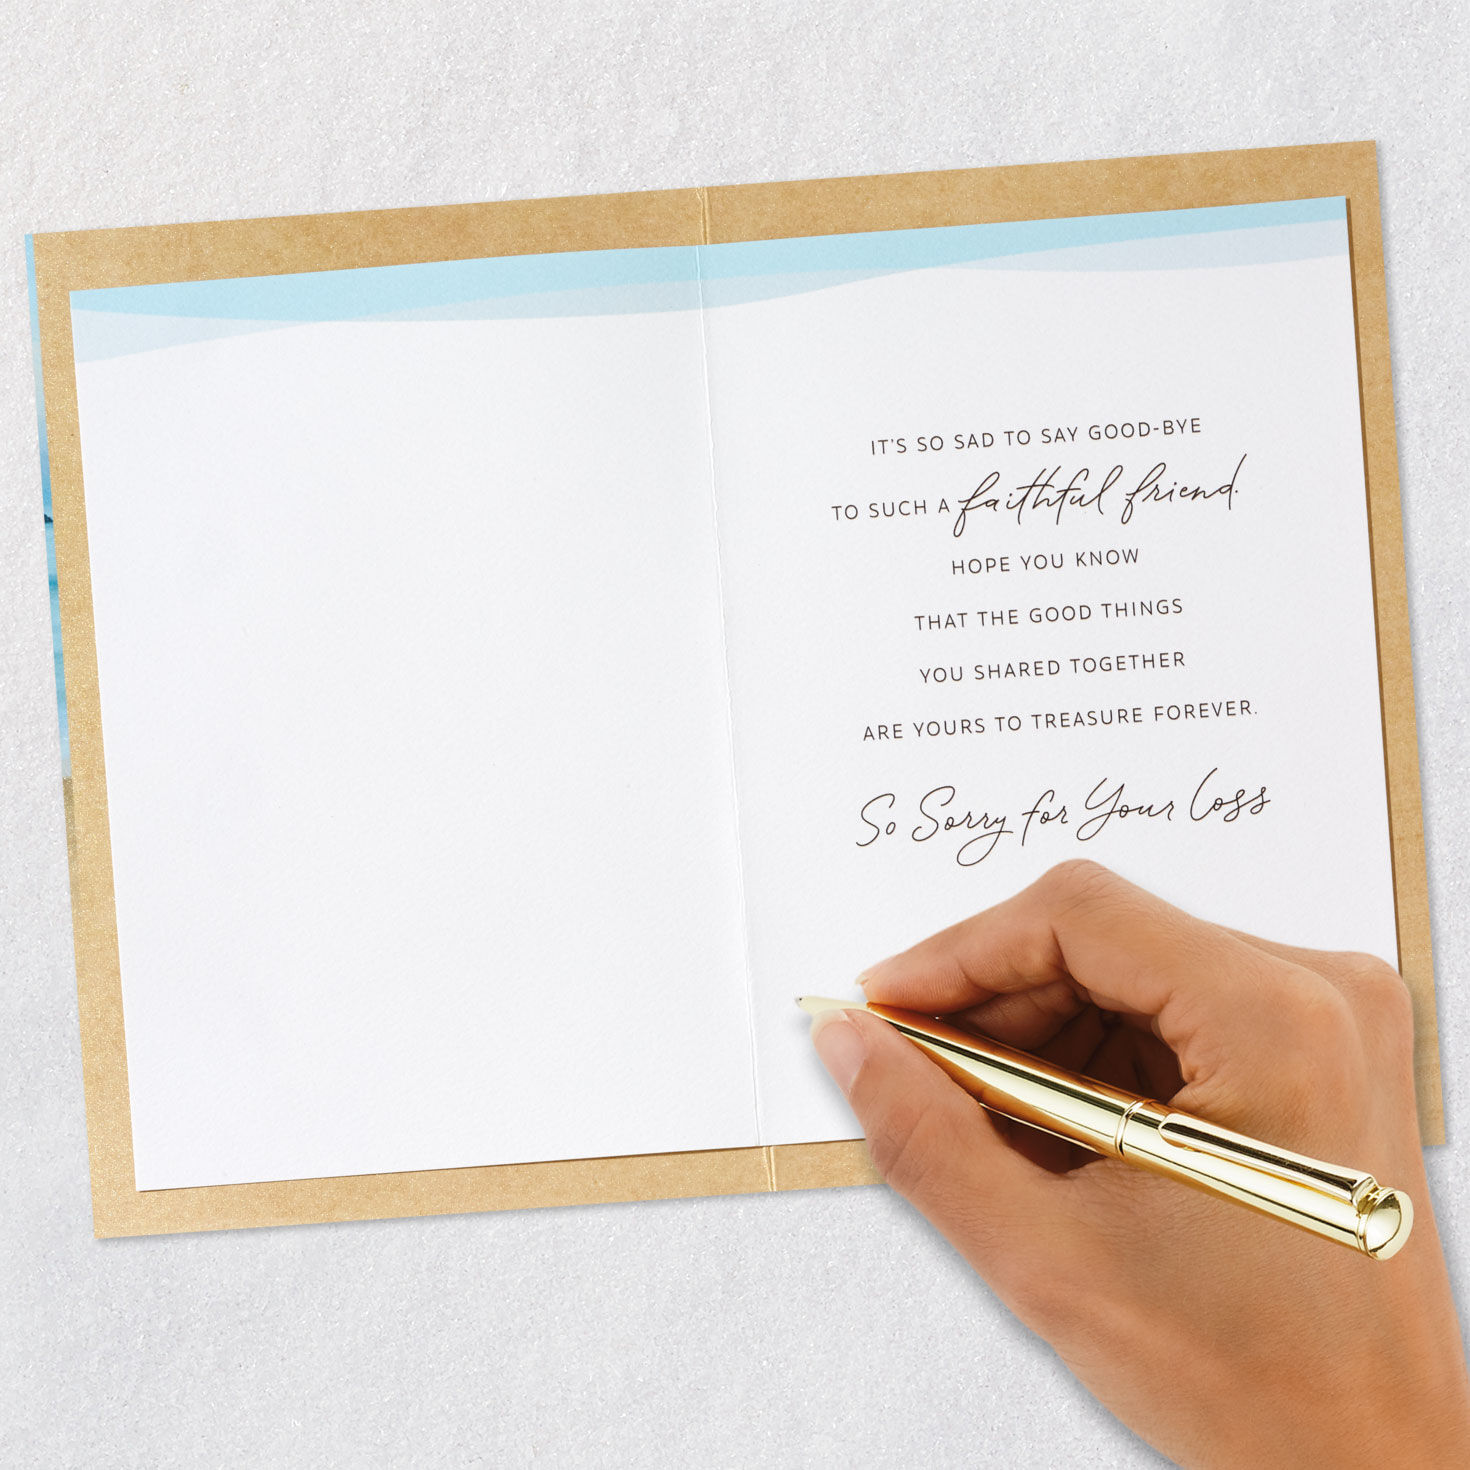 IT'S SO SAD TO SAY GOOD-BYE
TO SUCH A faithful friend.
HOPE YOU KNOW
THAT THE GOOD THINGS
YOU SHARED TOGETHER
ARE YOURS TO TREASURE FOREVER.
So Sorry for Your Loss